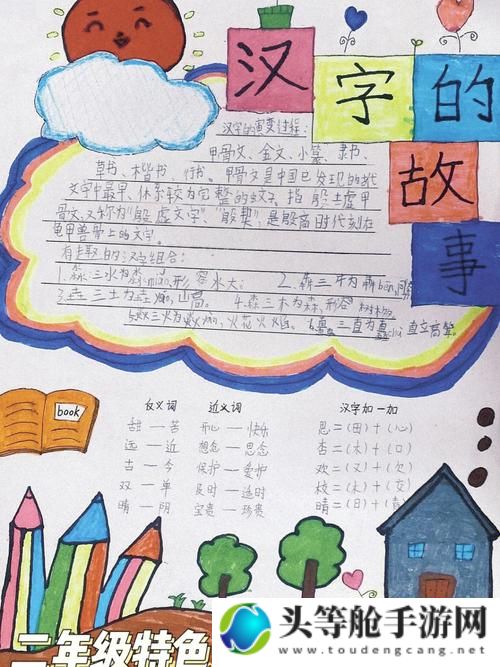 汉字的故事
汉字的演变过程：
甲骨文、金文、小篆、隶书、
草书、楷书、行书。甲骨文是中国已发现的古代
文字中最早、体系较为完整的文字。指殷墟甲
骨文，又称为“殷虚文字”、“殷契”，是殷商时代刻在
龟甲兽骨上的文字。
有趣的汉字组合：
1.淼：三水为淼miǎo，形容水大；
2.犇三牛为犇bēn，
3.垚三土为垚yáo，山高。
4.森三木为森，形容树
5.焱三火为焱yàn，火花火焰。
6.矗三直为矗chù 直立高耸。
book
反义词
甜—苦
远—近
古—今
双—单
晴—阴
近义词
开心—快乐
想念—思念
保护—爱护
及时—适时
宝贵—珍贵
汉字加一加
思=(田)+(心)
杏=(木)+(口)
欢=(又)+(欠)
校=(木)+(交)
晴=(日)+(青)
二年级特色
头等舱手游网
www.toudengcang.net